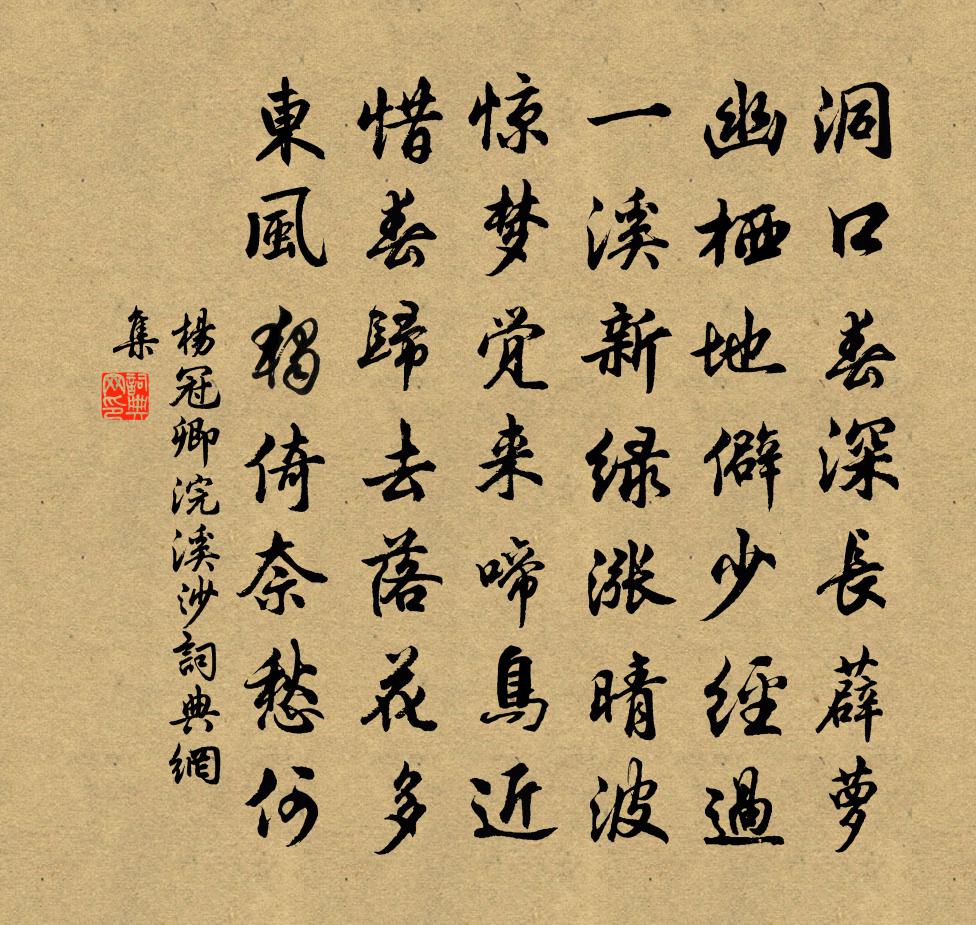 洞口春深長薜萝
幽栖地僻少經過
一溪新绿漲晴波
惊梦觉来啼鳥近
惜春歸去落花多
東風獨倚奈愁何
楊冠卿浣溪沙詞典網
集
詞典
网印